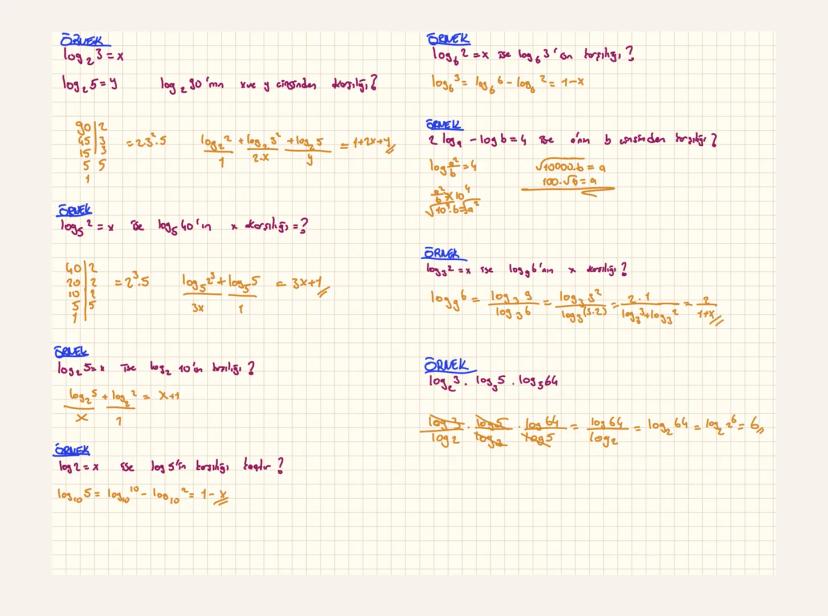 ÖRNEK
log₂3 = x
log₂5 = y log₂90'nın x ve y cinsinden karşılığı?
90 | 2
45 | 3
15 | 3
5 | 5
1
= 2.3².5
log₂2 + log₂3² + log₂5 = 1+2x+y
1 2.x y
ÖRNEK
log₅2 = x ise log₅40'ın x karşılığı = ?
40 | 2
20 | 2
10 | 2
5 | 5
1
= 2³.5
log₅2³ + log₅5 = 3x+1
3x 1
ÖRNEK
log₂5 = x ise log₂10'ın karşılığı ?
log₂5 + log₂2 = x+1
x 1
ÖRNEK
log2 = x ise log5'in karşılığı kaçtır ?
log₁₀5 = log₁₀10 - log₁₀2 = 1-x
ÖRNEK
log₆2 = x ise log₆3'ün karşılığı ?
log₆3 = log₆6 - log₆2 = 1-x
ÖRNEK
2 loga - logb = 4 ise a'nın b cinsinden karşılığı ?
log a²/b = 4
√10000.b = a
100.√b = a
a²/b = 10⁴
√10⁴.b = √a²
ÖRNEK
log₃2 = x ise log₉6'nın x karşılığı ?
log₉6 = log₃9/log₃6 = log₃3²/log₃(3.2) = 2.1/log₃3+log₃2 = 2/1+x
ÖRNEK
log₂3 . log₃5 . log₅64
log3/log2 . log5/log3 . log64/log5 = log64/log2 = log₂64 = log₂2⁶ = 6